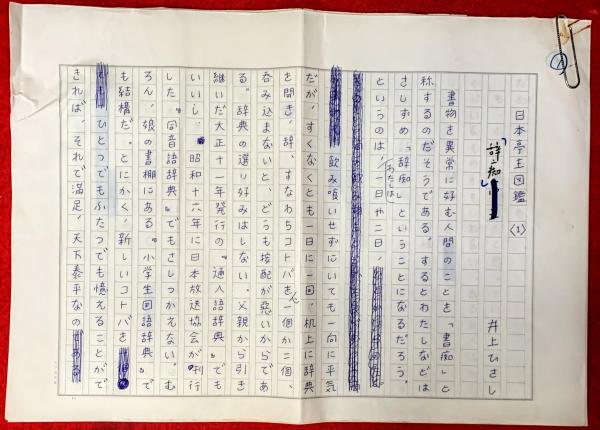 日本亭主図鑑〈1〉
「辞痴」
井上ひさし
書物を異常に好む人間のことを「書痴」と
称するのだそうである。するとわたしなどは
さしずめ「辞痴」ということになるだろう。
というのは、わたしは、一日や二日、
飲み喰いせずにいても一向に平気
だが、すくなくとも一日に一回、机上に辞典
を開き、辞、すなわちコトバを一個か二個、
呑み込まないと、どうも按配が悪いからであ
る。辞典の選り好みはしない。父親から引き
継いだ大正十一年発行の『通人語辞典』でも
いいし、昭和十六年に日本放送協会が刊行
した『同音語辞典』でもさしつかえない。む
ろん、娘の書棚にある『小学生国語辞典』で
も結構だ。とにかく、新しいコトバを
ひとつでもふたつでも憶えることがで
きれば、それで満足、天下泰平なの